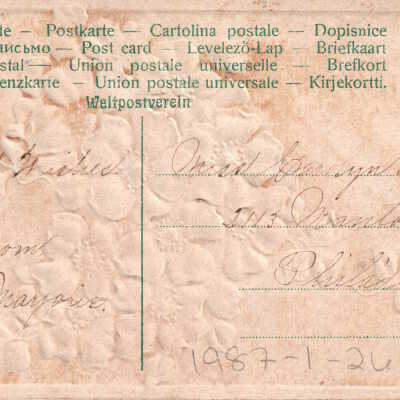 te – Postkarte – Cartolina postale – Dopisnice
письмо – Post card – Levelező-Lap – Briefkaart
stal – Union postale universelle – Brefkort
enzkarte – Union postale universale – Kirjekortti.
Weltpostverein
Wishes
from
Marjorie.
Miss
2113
Phila
1987-1-26